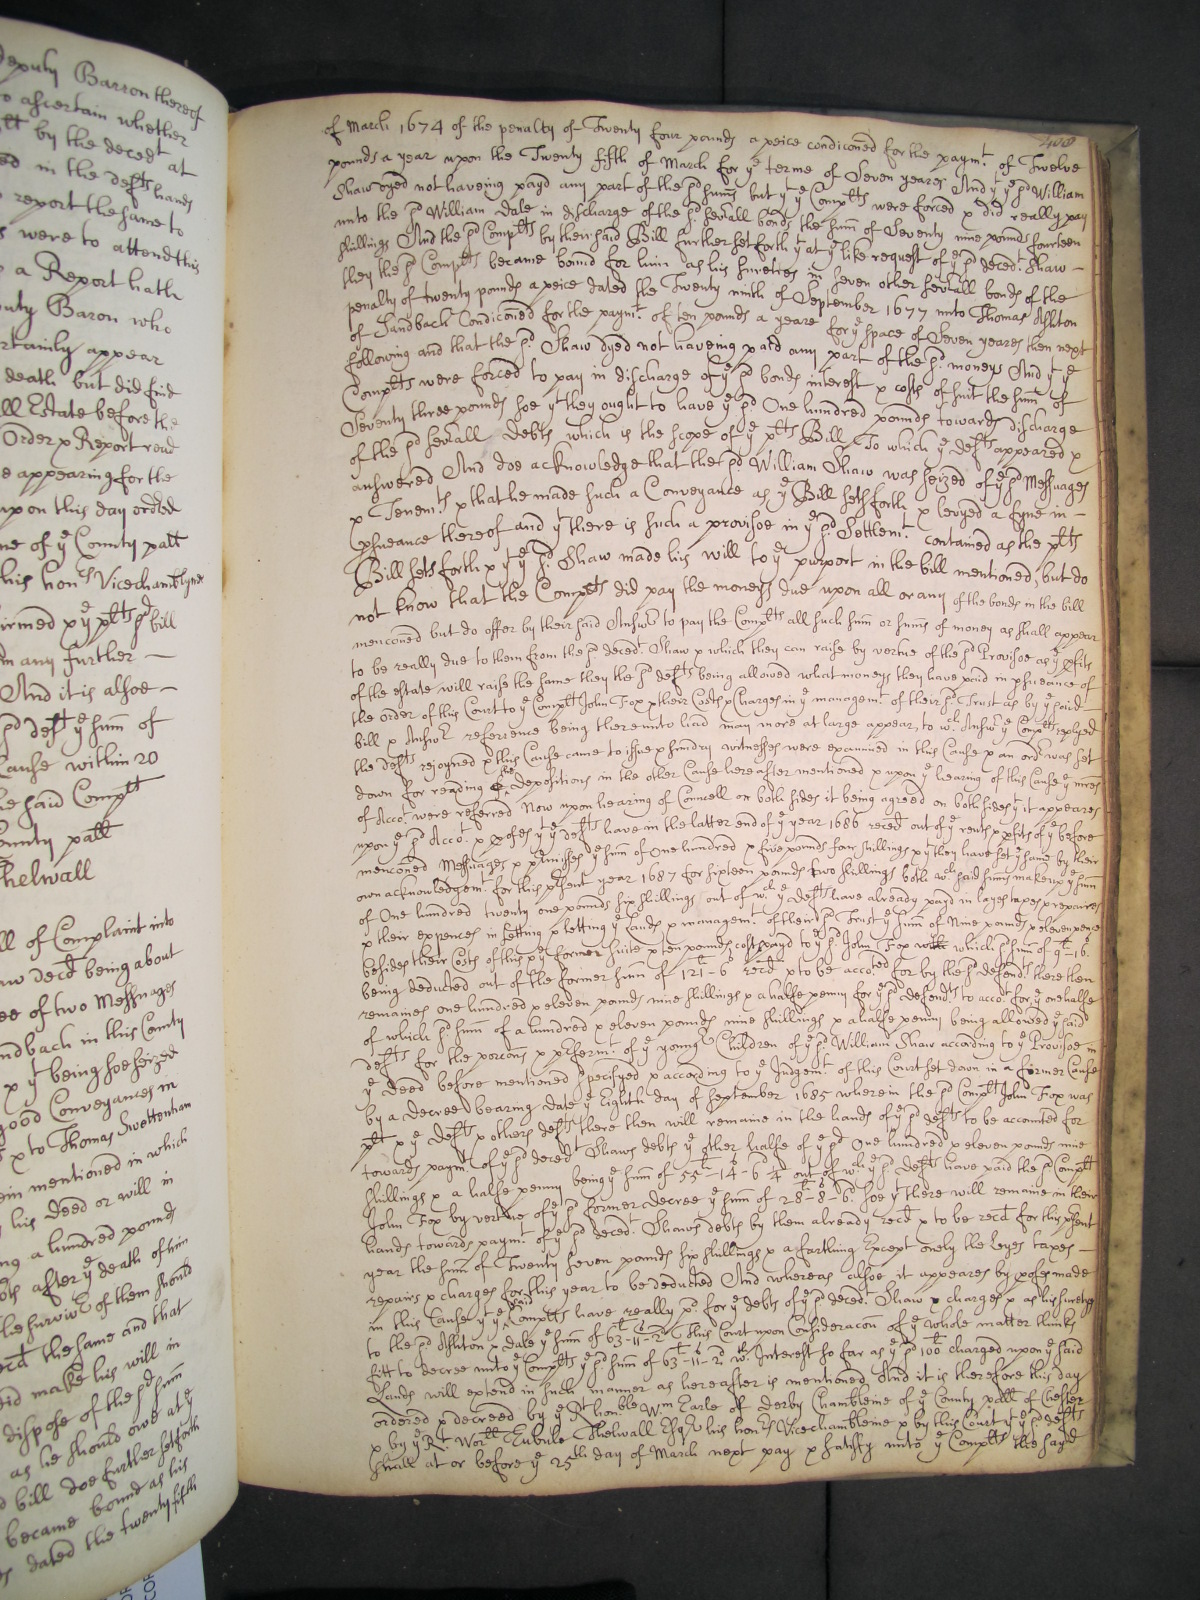 deputy Barron thereof
to ascertain whether
by the deced^t at
ed in the def^ts hands
report the same to
were to attend this
a Report hath
puty Baron who
certainly appear
death but did find
all Estate before the
Order x Report read
e appearing for the
upon this day ordred
me of y^e County pall
his hon^rs Vicechamblynes
irmed x y^e pl^ts s^d bill
m any further —
And it is alsoe —
s^d def^t y^e sum of
Cause within 20
he said Comp^lt
County pall
Thelwall
ll of Complaint into
aw deced being about
ee of two Messuages
ndbach in this County
x y^t being soe seized
good Conveyances in
x to Thomas Swettenham
ein mentioned in which
his deed or will in
ng a hundred pounds
oths after y^e death of him
the surviv^r of them should
recd the same and that
did make his will in
dispose of the s^d sum
as he should owe at y^e
d bill doe further setforth
became bound as his
dated the twenty fifth
408
of March 1674 of the penalty of Twenty four pounds a peice condiconed for the paym^t of Twelve
pounds a year upon the Twenty fifth of March for y^e terme of Seven yeares And y^t y^e s^d William
Shaw dyed not haveing payd any part of the s^d sums but y^t y^e Compl^ts were forced x did really pay
unto the s^d William Dale in discharge of the s^d severall bonds the sum of Seventy nine pounds fourteen
shillings And the s^d Compl^ts by their said Bill further set forth y^t at y^e like request of y^e s^d deced^t Shaw —
they the s^d Compl^ts became bound for him as his suretyes in seven other severall bonds of the
penalty of twenty pounds a peice dated the Twenty ninth of September 1677 unto Thomas Ashton
of Sandbach Condiconed for the paym^t of ten pounds a yeare for y^e space of Seven yeares then next
following and that the s^d Shaw dyed not haveing paid any part of the s^d moneys And y^t y^e
Compl^ts were forced to pay in discharge of y^e s^d bonds interest x costs of suit the sum of
Seventy three pounds soe y^t they ought to have y^e s^d One hundred pounds towards discharge
of the s^d severall Debts which is the scope of y^e pl^ts Bill To which y^e def^ts appeared x
answered And doe acknowledge that the s^d William Shaw was seized of y^e s^d Messuages
x Tenem^ts x that he made such a Conveyance as y^e Bill sets forth x levyed a fyne in —
psueance thereof and y^t there is such a provisoe in y^e s^d Settlem^t contained as the pl^ts
Bill sets forth x y^t y^e s^d Shaw made his will to y^e purport in the bill mentioned, but do
not know that the Compl^ts did pay the moneys due upon all or any of the bonds in the bill
menconed but do offer by their said Answ^r to pay the Compl^ts all such sum or sums of money as shall appear
to be really due to them from the s^d deced^t Shaw x which they can raise by vertue of the s^d Provisoe as y^e pfits
of the estate will raise the same they the s^d def^ts being allowed what moneys they have paid in psueance of
the order of this Court to y^e Compl^t John Fox x their Costs x Charges in y^e managem^t of their s^d Trust as by y^e said —
bill x Answ^r referrence being thereunto had may more at large appear, to w^ch Answ^r y^e Compl^ts replyed
the def^ts rejoyned x this Cause came to issue x sundry witnesses were examined in this Cause x an ord^r was set
down for reading the depositions in the other Cause hereafter mentioned x upon y^e hearing of this Cause y^e
of Acco^t were referred Now upon hearing of Councell on both sides it being agreed on both sides y^t it appeares
upon y^e s^d Acco^t x pofes y^t y^e def^ts have in the latter end of y^e year 1686 recd out of y^e rents x pfits of y^e before
menconed Messuages x p^rmisses y^e sum of One hundred x five pounds four shillings x y^t they have set y^e same by their
own acknowledgem^t for this p^rsent year 1687 for sixteen pounds two shillings both w^ch said sums make up y^e sum
of One hundred twenty one pounds six shillings out of w^ch y^e def^ts have already payd in layes taxes x repaires
x their expences in setting x letting y^e Lands x managem^t of their s^d Trust y^e sum of Nine pounds x eleven pence
besides their Costs of this x y^e former suite x ten pounds costs payd to y^e s^d John Fox which s^d sum of
being deducted out of the former sum of 121^l - 6^s recd x to be accoted for by the s^d defend^ts there then
remaines one hundred x eleven pounds nine shillings x a halfe penny for y^e s^d defend^ts to acco^t for y^e one halfe
of which s^d sum of a hundred x eleven pounds nine shillings x a halfe penny being allowed y^e said
def^ts for the porcons x p^rferm^t of y^e young^r Children of y^e s^d William Shaw according to y^e Provisoe in
y^e Deed before mentioned specifyed x according to y^e Judgem^t of this Court set down in a former Cause
by a Decree bearing date y^e Eighth day of September 1685 wherein the s^d Compl^t John Fox was
pl^t x y^e def^ts x others def^ts there then will remaine in the hands of y^e s^d def^ts to be accounted for
towards paym^t of y^e s^d deced^t Shaws debts y^e other halfe of y^e s^d One hundred x eleven pounds nine
shillings x a halfe penny being y^e sum of 55^l - 14 - 6 - ¼ out of w^ch y^e s^d def^ts have paid the s^d Compl^t
John Fox by vertue of y^e s^d former decree y^e sum of 28^l - 8^s - 6^d soe y^t there will remaine in their
hands towards paym^t of y^e s^d deced^t Shaws debts by them already recd x to be recd for this p^rsent
year the sum of Twenty seven pounds six shillings x a farthing Except onely the leyes taxes —
repairs x charges for this year to be deducted And whereas alsoe it appeares by pofes made
in this Cause y^t y^e said Compl^ts have really p^d for y^e debts of y^e s^d deced^t Shaw x charges x as his suretys
to the s^d Ashton x Dale y^e sum of 63 - 11 - 2 This Court upon Consideracon of y^e whole matter thinks
fitt to decree unto y^e Compl^ts y^e s^d sum of 63 - 11 - 2 w^th Interest so far as y^e s^d 100^l charged upon y^e said
Lands will extend in such manner as hereafter is mentioned And it is therefore this day
ordered x decreed by y^e R^t honble W^m Earle of Derby Chambleine of y^e County pall of Chester
x by y^e R^t Wor^ll Eubule Thelwall Esq^r his hon^rs Vicechambleine x by this Court y^t y^e s^d def^ts
shall at or before y^e 25^th day of March next pay x satisfy unto y^e Compl^ts the sayd